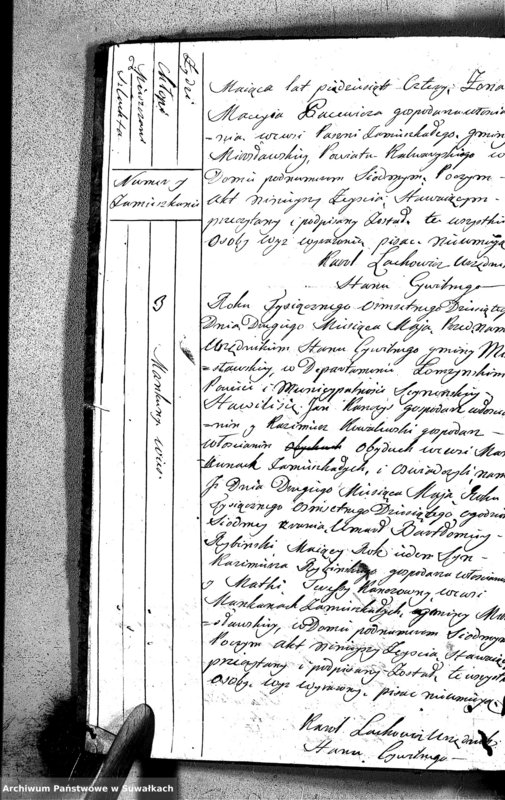 Żydzi
Chłopi
Mieszczanie
Szlachta
Numer y
Zamieszkanie
3
Markuny wieś
Maiąca lat pięдziesiąt Cztery, Żona
Macieja Pacewicza gospodarza włościa
=nina, wewsi Zamieszkałego, gminy
Mirosławskiy, Powiatu Kalwaryiskiego w
Domu podnumerem Siodmym, Poczym
Akt ninieyszy Zeyscia, Stawaiącym
przeczytany i podpisany Został, te wszystkie
Osoby wyż wyrażone, pisac nieumieją
Karol Lachowicz Urzędnik
Stanu Cywilnego
Roku Tysiącznego Osmsetnego Dziesiątego
Dnia Drugiego Miesiąca Maja, Przed nami
Urzędnikiem Stanu Cywilnego gminy Mi
=sławskiy, w Departamencie Łomżynskim
Powieci i Municypalności Seynenskiy
Stawiliście Jan gospodarz włosci
=nin y Kazimierz Kowalewski gospodarz
włościanin Obydwch wewsi Mar
kunach Zamieszkałych, i oświadczyli nam
Iż Dnia Drugiego Miesiąca Maja Roku
Tysiącznego Osmsetnego Dziesiątego, ogodzinie
Siodmey zrania, Umarł Bartłomiey
Rybinski Maiący Rok ieden Syn
Kazimierza Rybinskiego gospodarza włościanina
y Matki wewsi
Markunach Zamieszkałych, gminy Mi
=sławskiy, w Domu podnumerem Siodmym
Poczym Akt ninieyszy Zeyscia Stawaiącym
przeczytany i podpisany Został, te wszystkie
Osoby wyż wyrażone, pisac nieumieją
Karol Lachowicz Urzędnik
Stanu Cywilnego
Archiwum Państwowe w Suwałkach